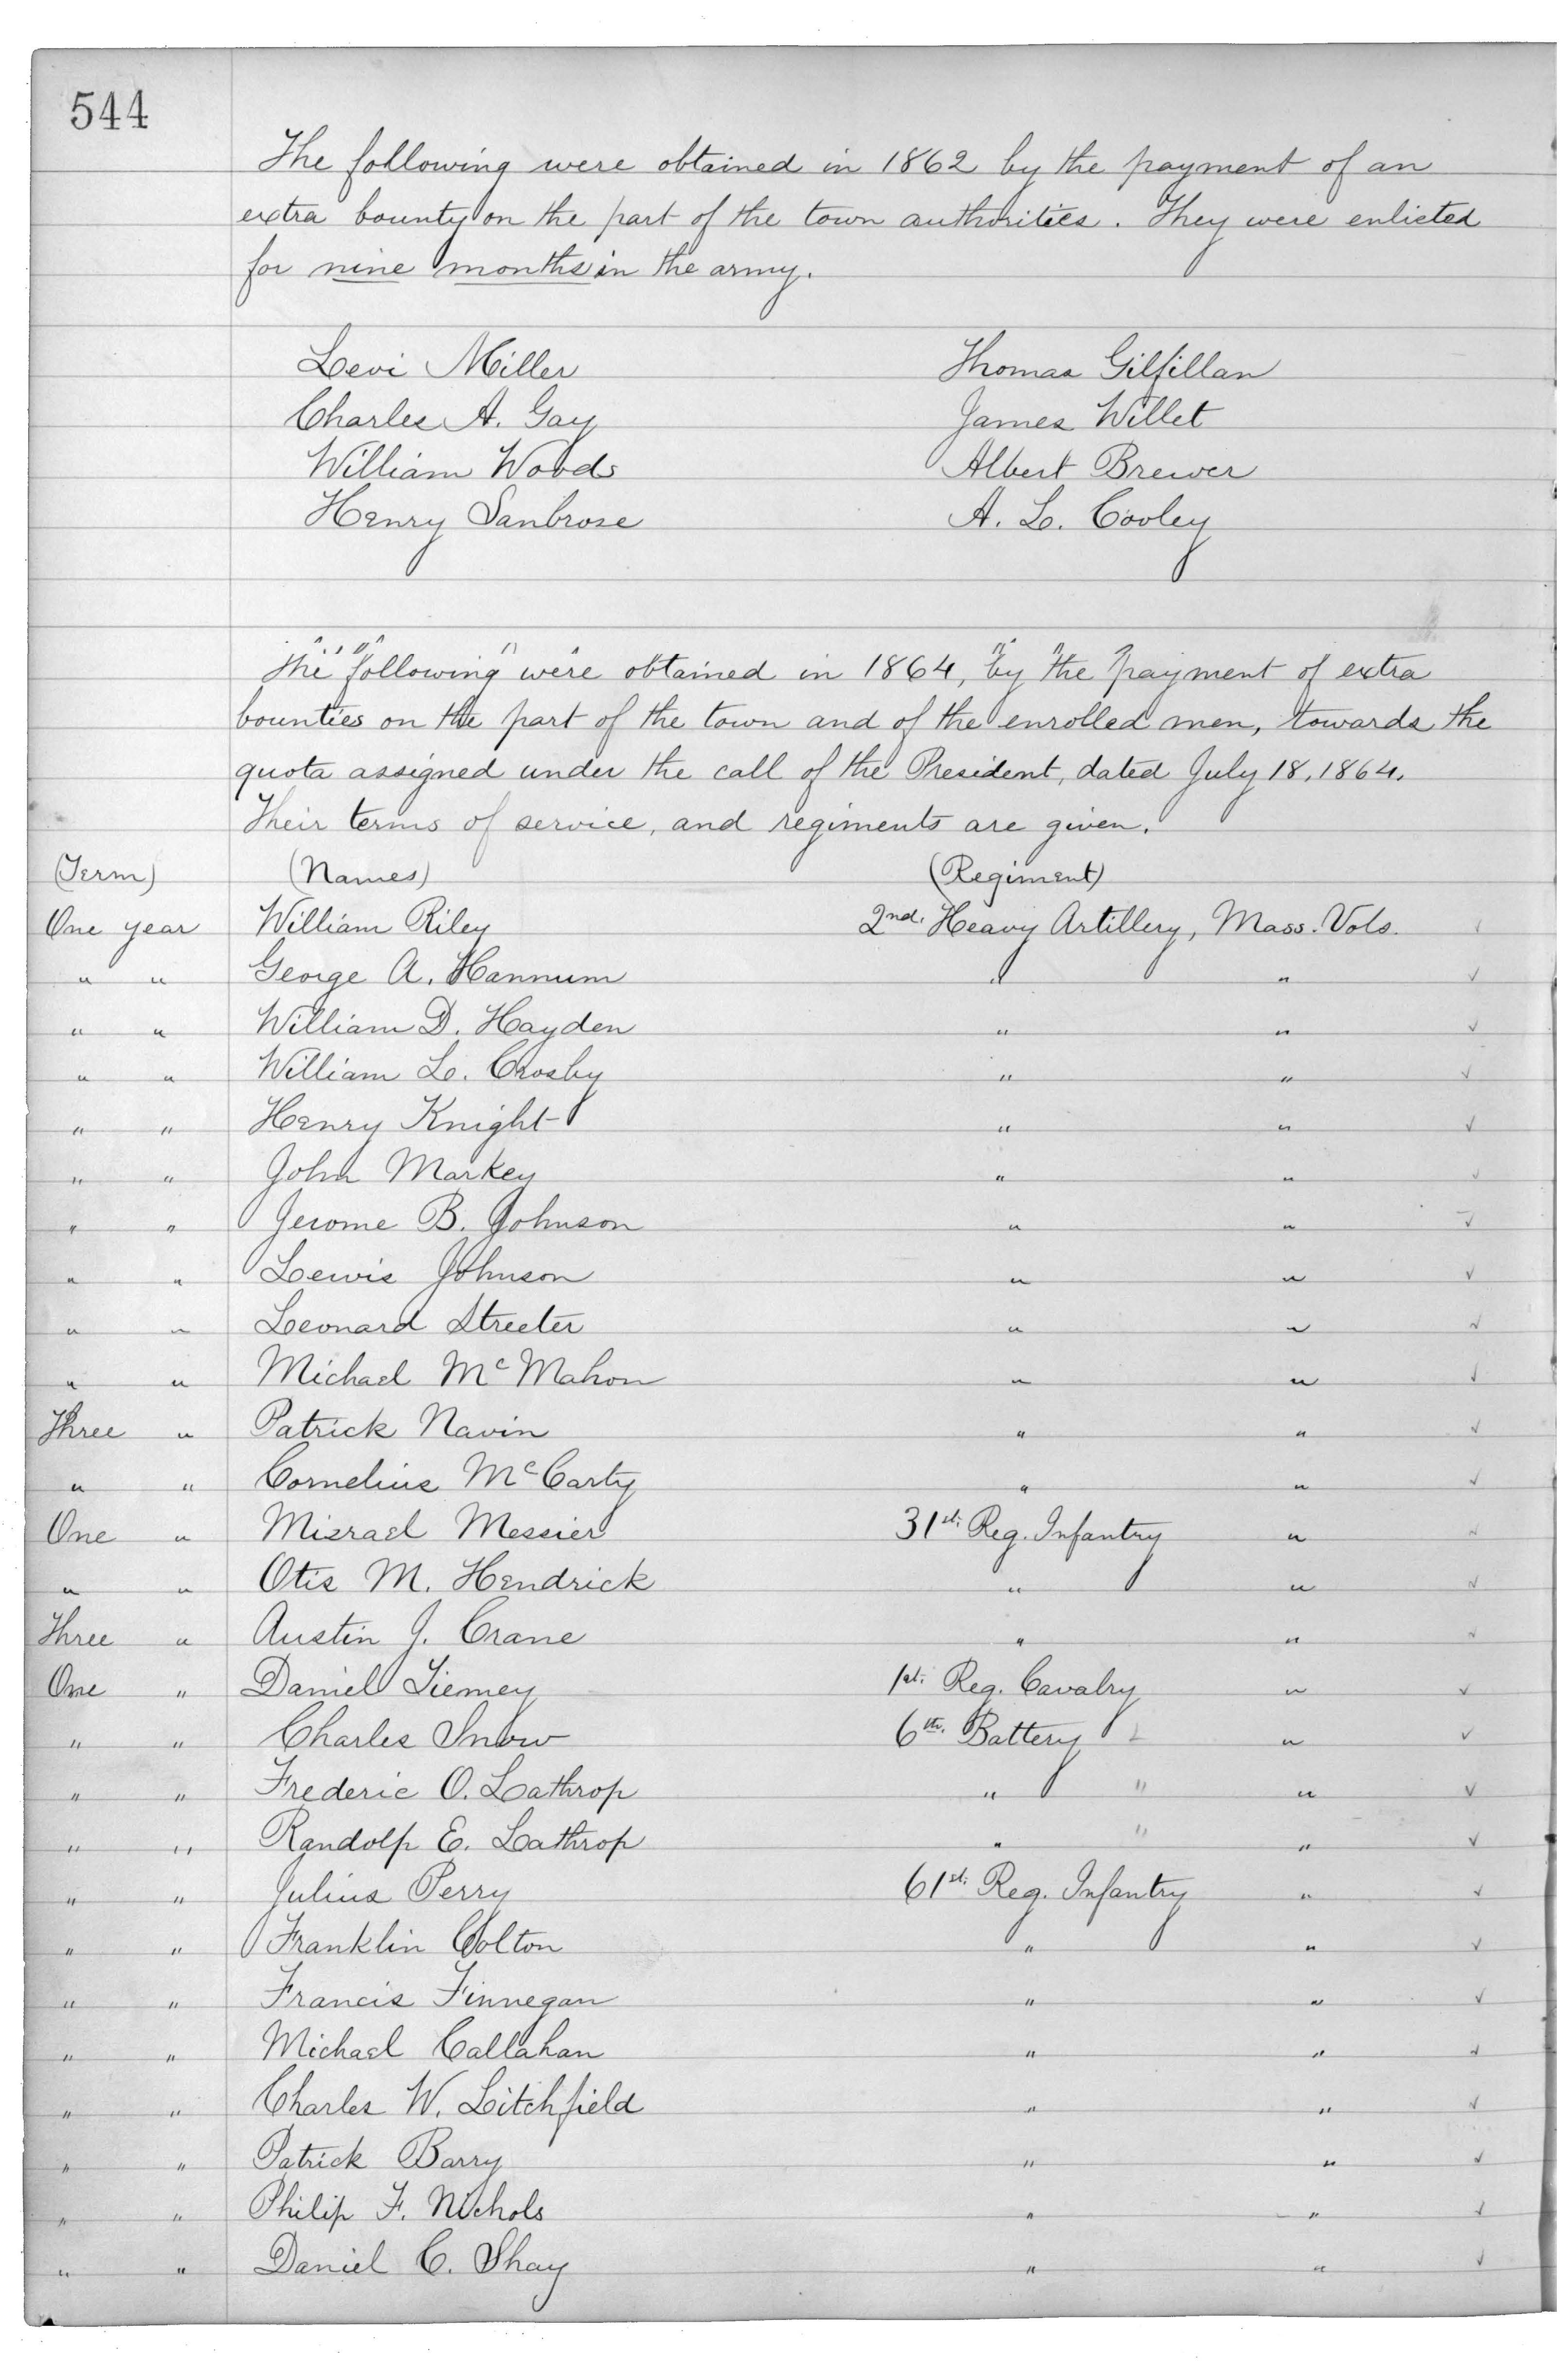 544
The following were obtained in 1862 by the payment of an
extra bounty on the part of the town authorities. They were enlisted
for nine months in the army.
Levi Miller Thomas Gilfillan
Charles A. Gay James Willet
William Woods Albert Brewer
Henry Sanbrose A. L. Cooley
The following were obtained in 1864, by the payment of extra
bounties on the part of the town and of the enrolled men, towards the
quota assigned under the call of the President, dated July 18, 1864.
Their terms of service, and regiments are given.
(Term) (Names) (Regiment)
One year William Riley 2nd. Heavy Artillery, Mass. Vols.
" " George A. Hannum " " ✓
" " William D. Hayden " " ✓
" " William L. Crosby " " ✓
" " Henry Knight " " ✓
" " John Markey " " ✓
" " Jerome B. Johnson " " ✓
" " Lewis Johnson " " ✓
" " Leonard Streeter " " ✓
" " Michael McMahon " " ✓
Three " Patrick Navin " " ✓
" " Cornelius McCarty " " ✓
One " Misrael Messier 31st. Reg. Infantry " ✓
" " Otis M. Hendrick " " ✓
Three " Austin J. Crane " " ✓
One " Daniel Tierney 1st. Reg. Cavalry " ✓
" " Charles Snow 6th. Battery " ✓
" " Frederic O. Lathrop " " " ✓
" " Randolp E. Lathrop " " " ✓
" " Julius Perry 61st. Reg. Infantry " ✓
" " Franklin Colton " " ✓
" " Francis Finnegan " " ✓
" " Michael Callahan " " ✓
" " Charles W. Litchfield " " ✓
" " Patrick Barry " " ✓
" " Philip F. Nichols " " ✓
" " Daniel C. Shay " " ✓